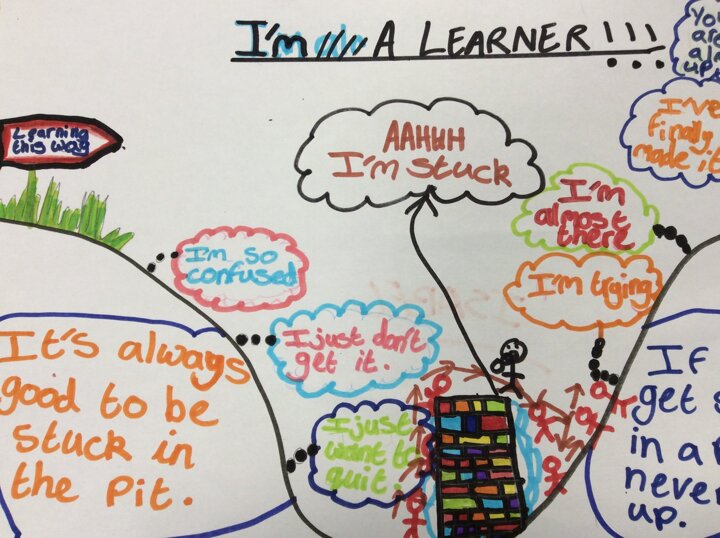 I'm A LEARNER!!!
Learning
this way
I'm so
confused
I just don't
get it.
I just
want to
quit.
AAHHH
I'm stuck
I'm
almost
there
I'm trying
I've
finally
made it
You
are
up
It's always
good to be
stuck in
the pit.
If
get
in a
never
up.